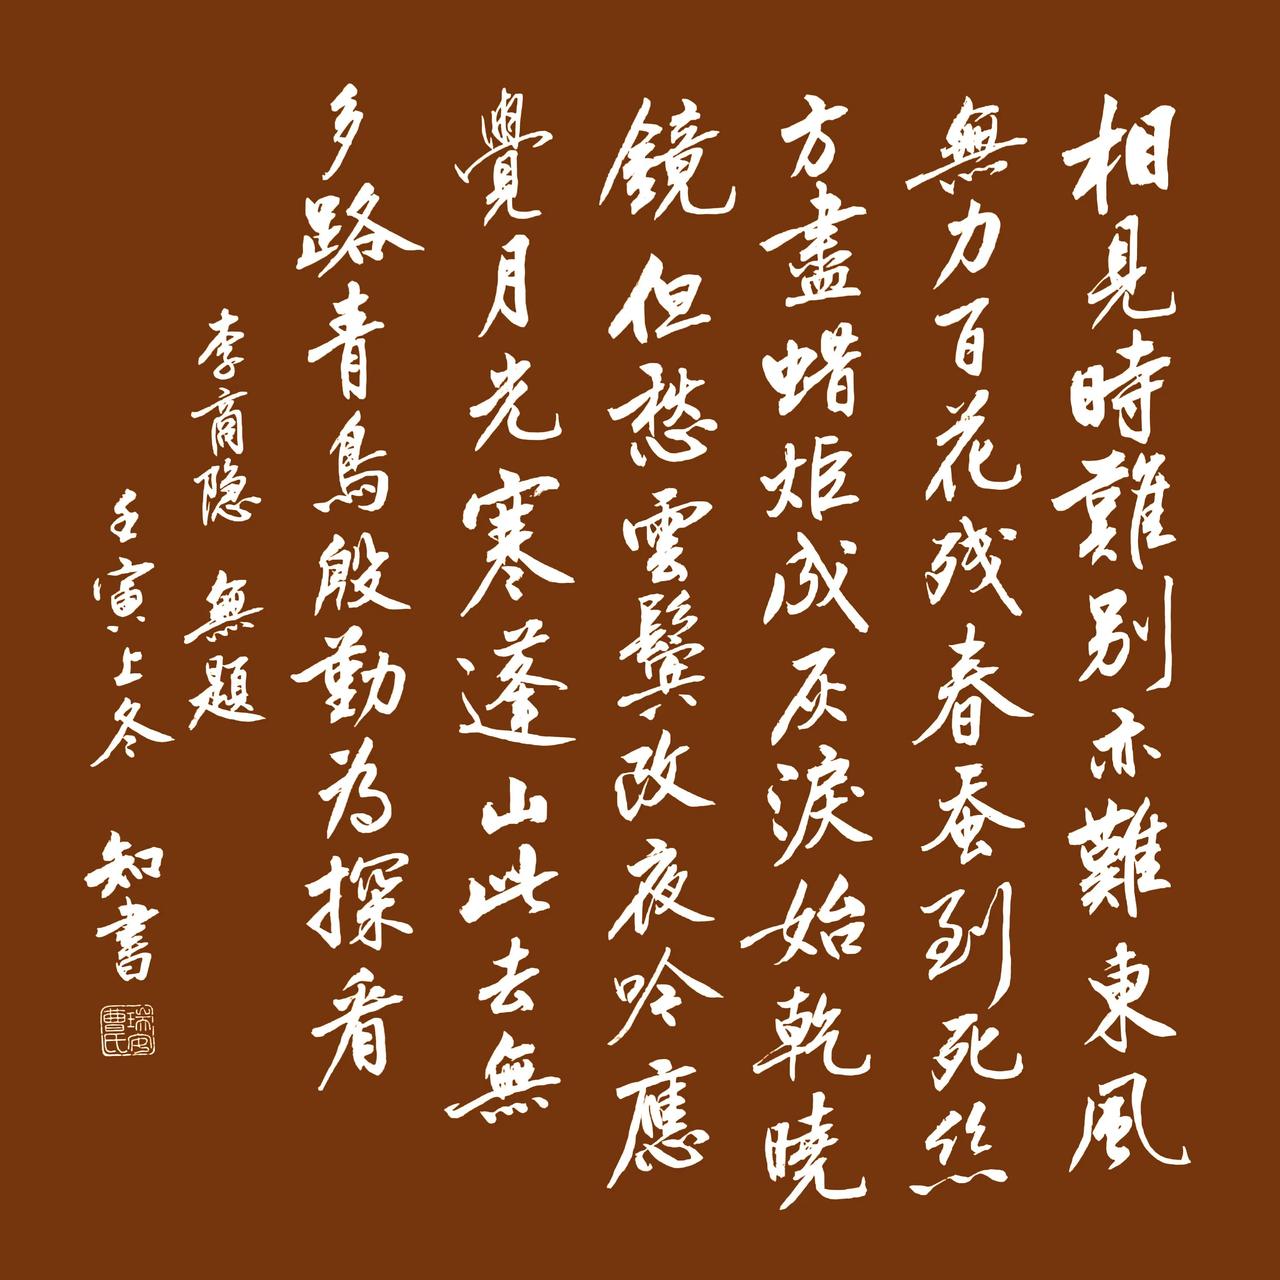 相見時難別亦難東風
無力百花残春蚕到死丝
方盡蜡炬成灰淚始乾曉
鏡但愁雲鬓改夜吟應
覺月光寒蓬山此去無
多路青鳥殷勤為探看
李商隐 無題
壬寅上冬 知書
瑞安曹氏